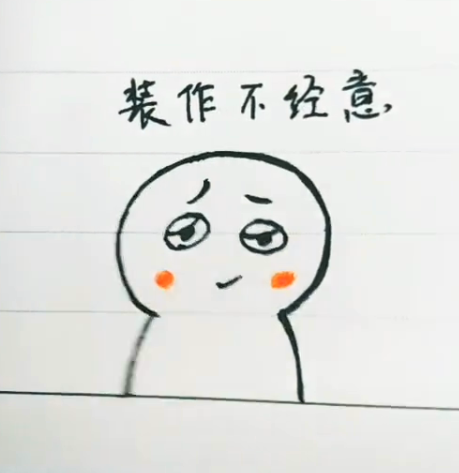 装作不经意